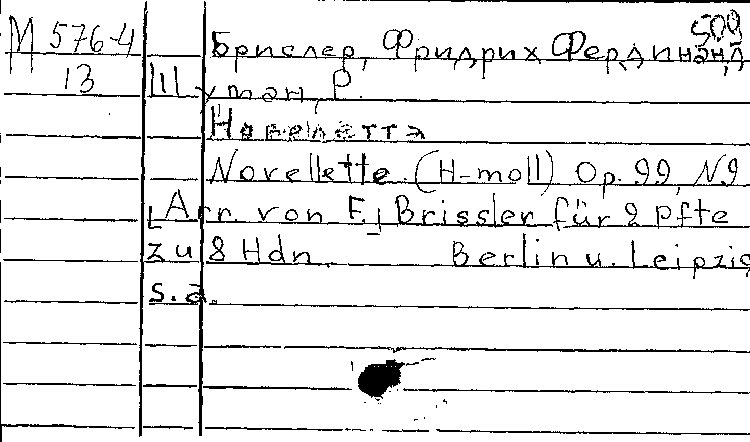 509
М 576-4 Брислер, Фридрих Фердинанд
13 Шуман, Р.
Новелетта
Novellette (H-moll) Op. 99, N.9
[Arr. von F. Brissler für 2 Pfte
zu 8 Hdn. Berlin u. Leipzig
s.a.